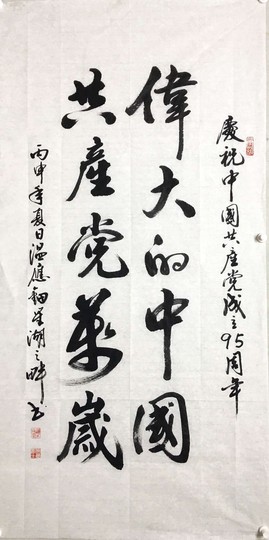 慶祝中國共產党成立95周年
偉大的中國
共產党萬歲
丙申年夏日温應鈿星湖之畔书